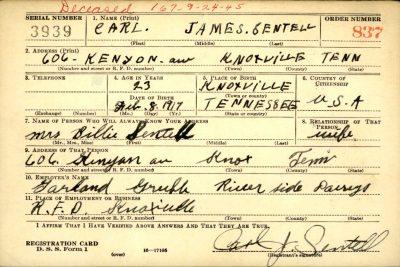 Deceased 167-9-24-45
SERIAL NUMBER 1. NAME (Print) ORDER NUMBER
3939 CARL. JAMES. SENTELL 837
(First) (Middle) (Last)
2. ADDRESS (Print)
606- KENYON. av KNOXVILLE TENN
(Number and street or R. F. D. number) (Town) (County) (State)
3. TELEPHONE 4. AGE IN YEARS 5. PLACE OF BIRTH 6. COUNTRY OF CITIZENSHIP
23 KNOXVILLE
DATE OF BIRTH (Town or county)
Feb. 8. 1917 TENNESSEE U.S.A
(Exchange) (Number) (Mo.) (Day) (Yr.) (State or country)
7. NAME OF PERSON WHO WILL ALWAYS KNOW YOUR ADDRESS 8. RELATIONSHIP OF THAT PERSON
mrs Billie Sentell wife
(Mr., Mrs., Miss) (First) (Middle) (Last)
9. ADDRESS OF THAT PERSON
606. Kenyon av Knox Tenn
(Number and street or R. F. D. number) (Town) (County) (State)
10. EMPLOYER'S NAME
River side Dairys
11. PLACE OF EMPLOYMENT OR BUSINESS
R.F.D Knoxville
(Number and street or R. F. D. number) (Town) (County) (State)
I AFFIRM THAT I HAVE VERIFIED ABOVE ANSWERS AND THAT THEY ARE TRUE.
REGISTRATION CARD
D. S. S. Form 1 (over) 16—17105 Carl J. Sentell
(Registrant's signature)